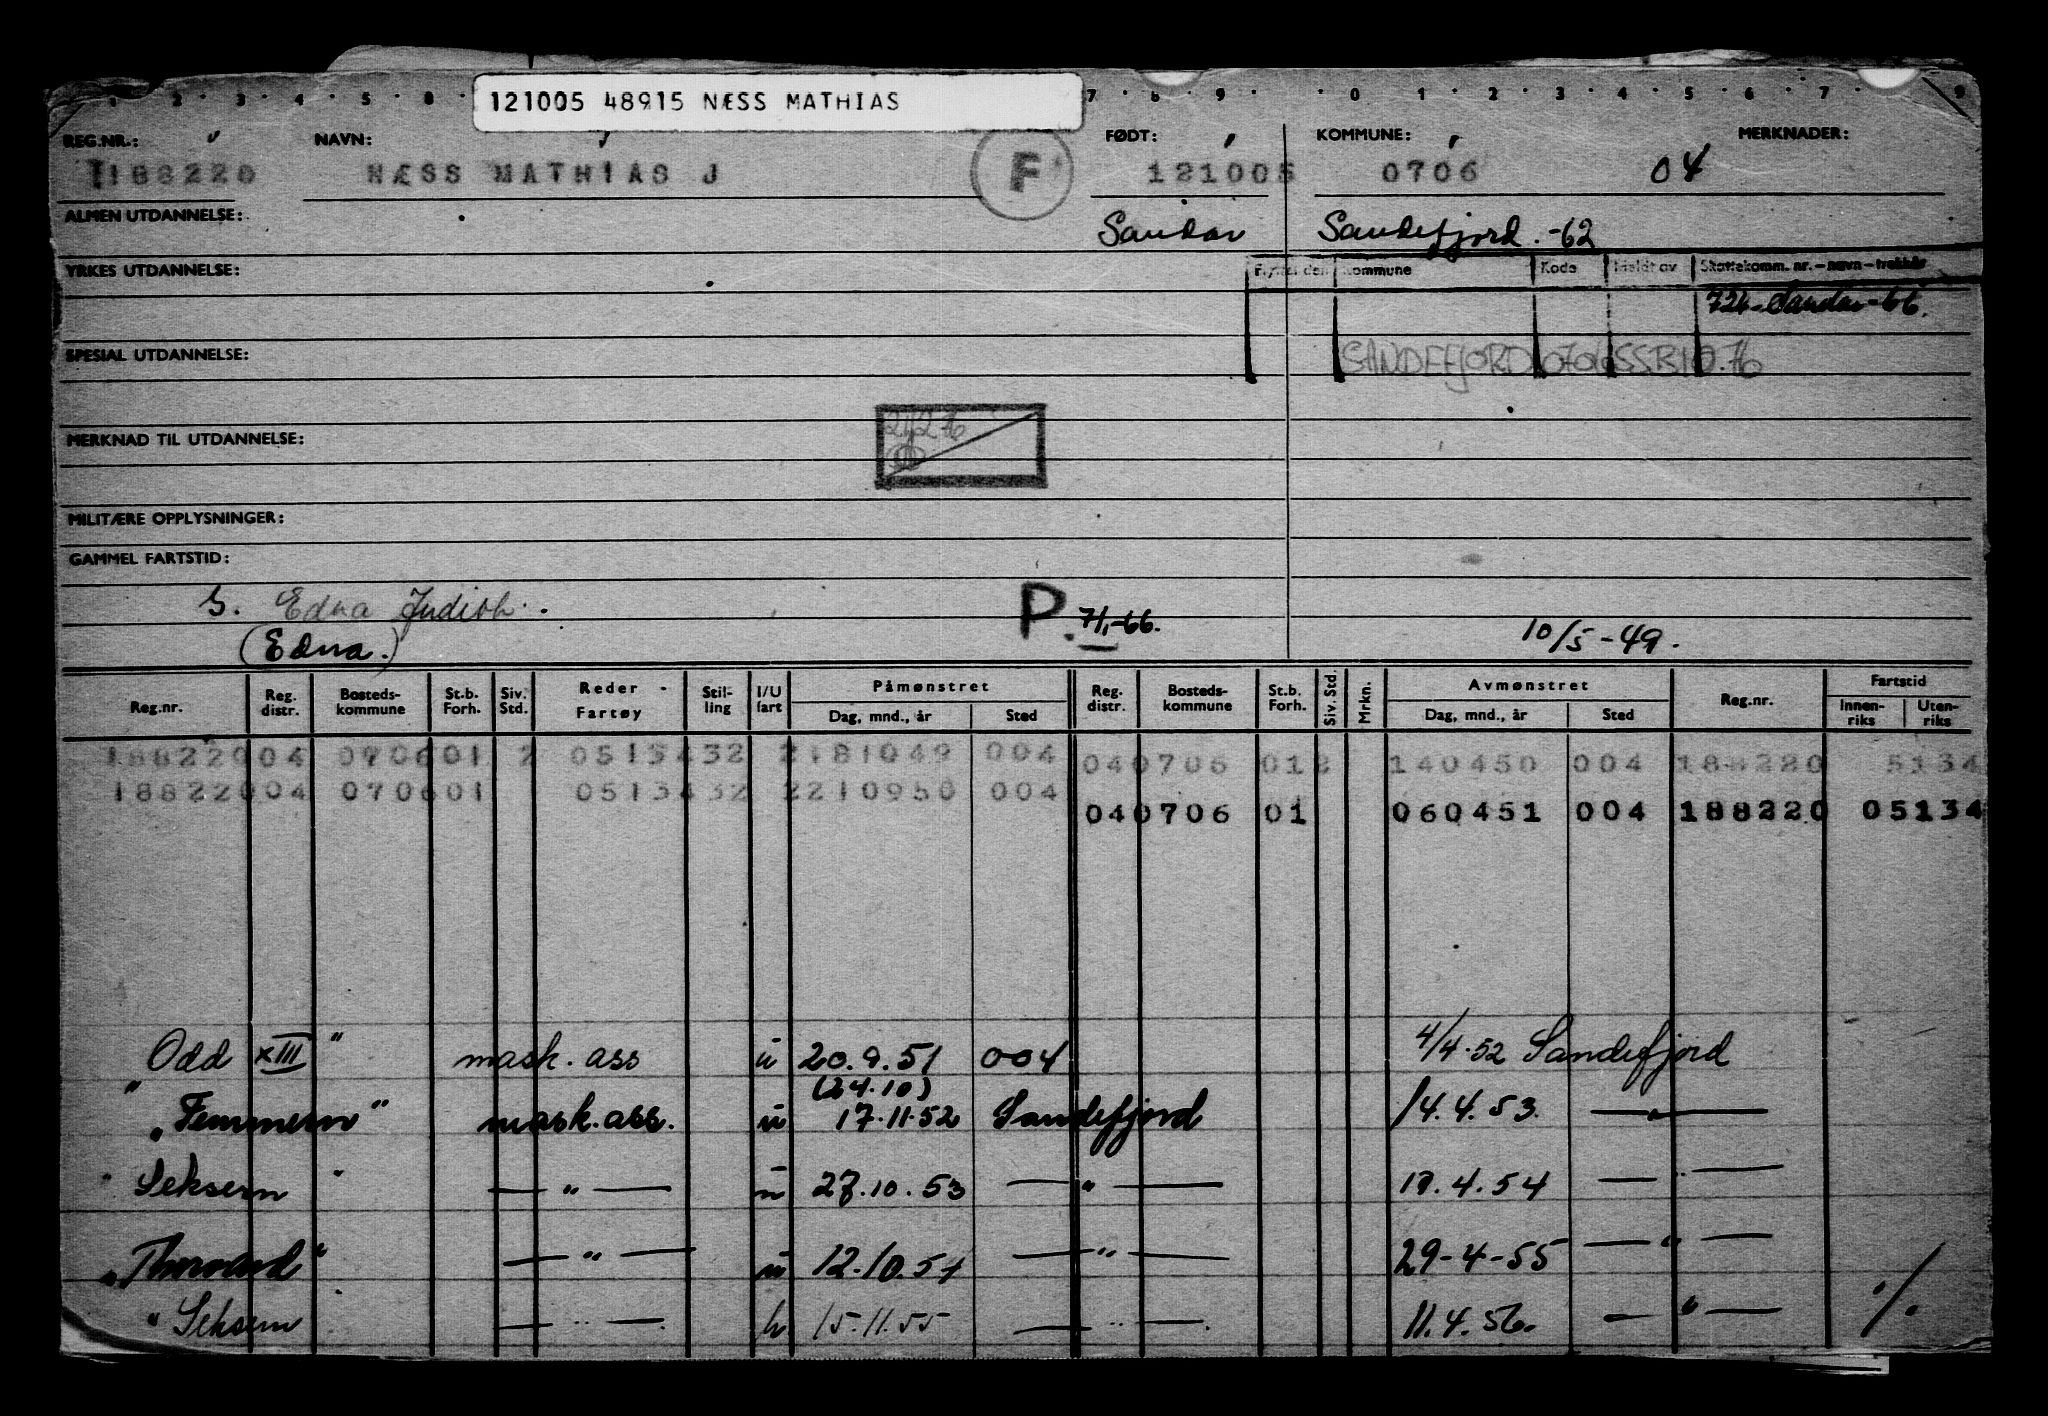 121005 48915 NÆSS MATHIAS
REG.NR.: NAVN: FØDT: KOMMUNE: MERKNADER:
188220 NÆSS MATHIAS J F 121005 0706 04
ALMEN UTDANNELSE: Sandar Sandefjord.-62
YRKES UTDANNELSE: Flyttet den Kommune Kode Meldt av Skattekomm. nr.-navn-trekkår
724-Sandar-66.
SPESIAL UTDANNELSE: SANDEFJORD 0706 SSB 10.76
21/2 76
MERKNAD TIL UTDANNELSE:
MILITÆRE OPPLYSNINGER:
GAMMEL FARTSTID:
G. Edna Judith. P. 7/1-66.
(Edna.) 10/5-49.
Reg.nr. Reg. distr. Bosteds-kommune St.b. Forh. Siv. Std. Reder - Fartøy Stil-ling I/U fart Påmønstret Dag, mnd., år Sted Reg. distr. Bosteds-kommune St.b. Forh. Siv. Std. Mrkn. Avmønstret Dag, mnd., år Sted Reg.nr. Fartstid Innen-riks Uten-riks
188220 04 0706 01 2 0513432 2 181049 004 04 0706 01 2 140450 004 188220 5134
188220 04 0706 01 0513432 2 210950 004
04 0706 01 060451 004 188220 05134
Odd XIII " mask. ass u 20.9.51 004 4/4.52 Sandefjord
(24.10)
"Femmern" mask. ass. u 17.11.52 Sandefjord 14.4.53 — " —
"Seksern" — " — u 27.10.53 — " — 17.4.54 — " —
"Thorvard" — " — u 12.10.54 — " — 29-4-55 — " —
"Seksern — " — u 15.11.55 — " — 11.4.56. — " — ./.